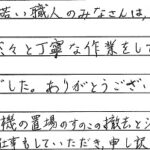 若い職人のみなさんは、
々と丁寧な作業をして
でした。ありがとうござい
機の置場のすのこの撤去と
仕事もしていただき、申し訳